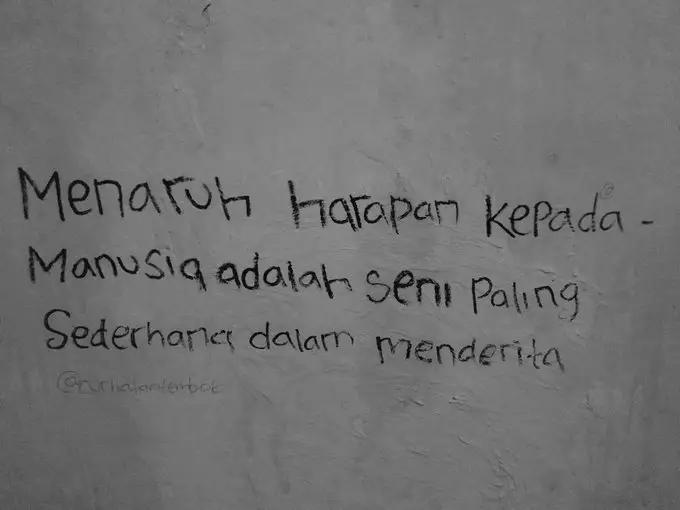 Menaruh harapan kepada -
Manusia adalah seni Paling
Sederhana dalam menderita